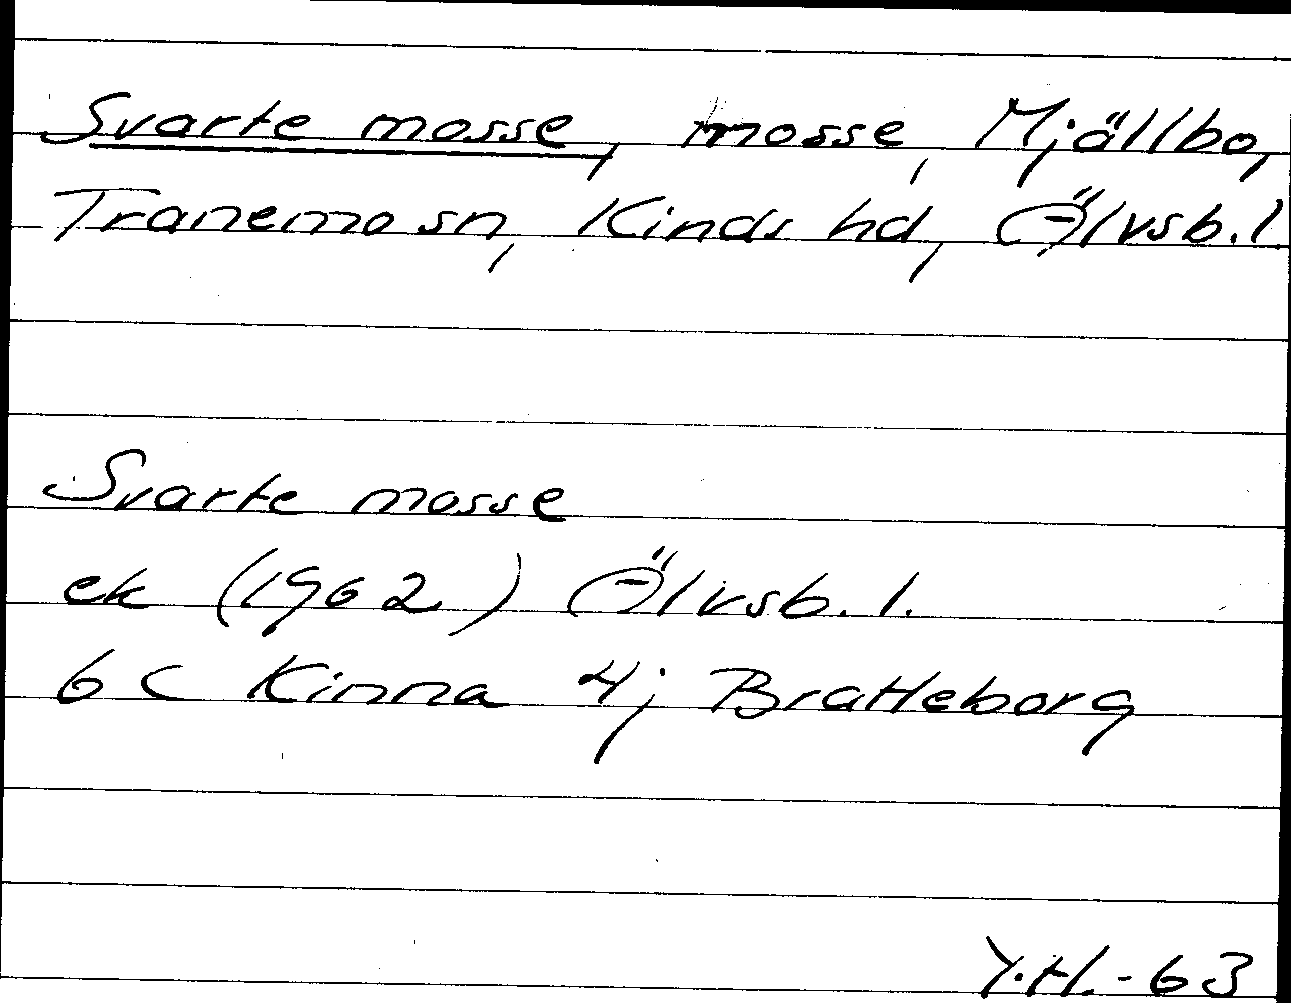 Svarte mosse, mosse, Mjällbo,
Tranemo sn, Kinds hd, Älvsb. l.
Svarte mosse
ek (1962) Älvsb. l.
6 C Kinna 4j Bratteborg
Y.H.-63